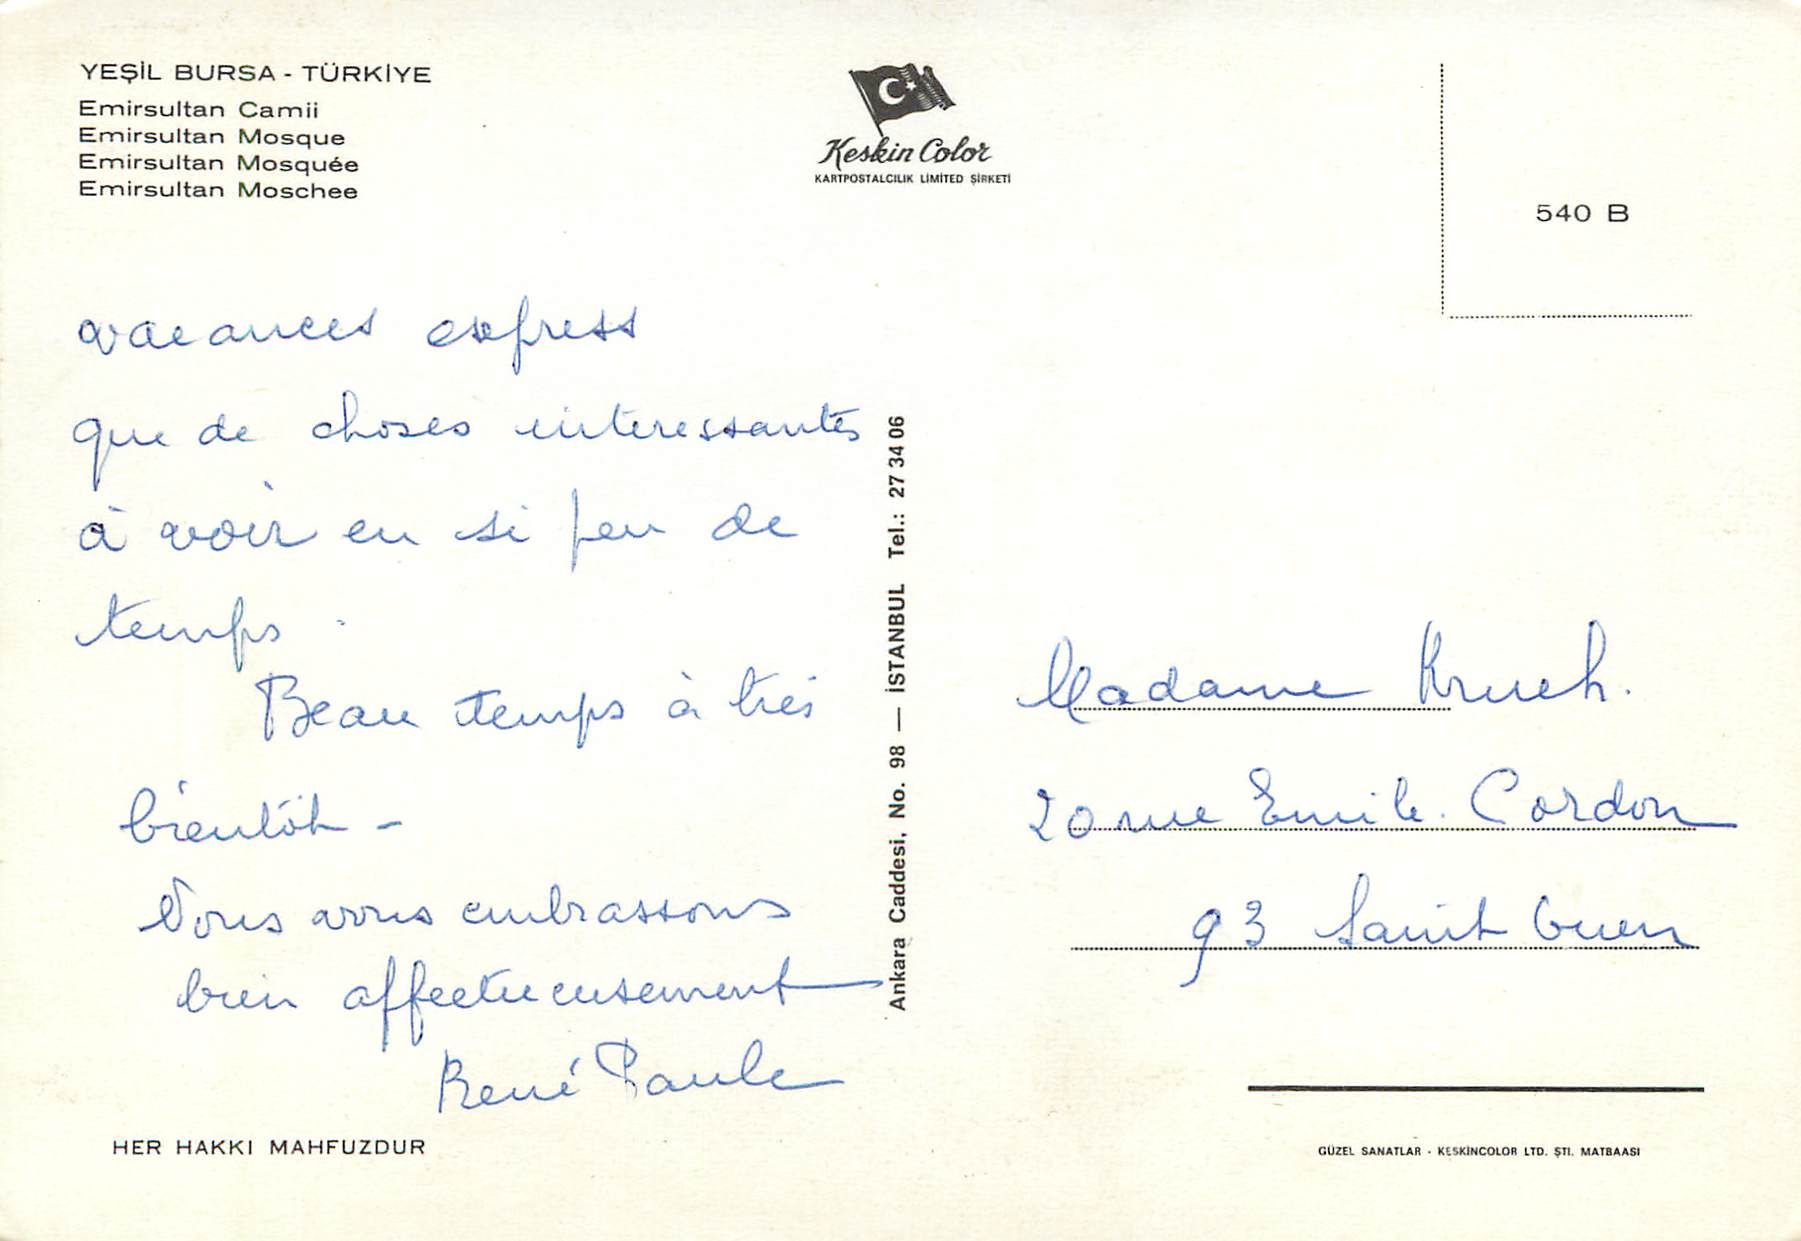 YEŞİL BURSA - TÜRKİYE
Emirsultan Camii
Emirsultan Mosque
Emirsultan Mosquée
Emirsultan Moschee
Keskin Color
KARTPOSTALCILIK LİMİTED ŞİRKETİ
540 B
vacances express
que de choses interessantes
à voir en si peu de
temps.
Beau temps à très
bientôt -
Nous vous embrassons
bien affectueusement
René Paule
Ankara Caddesi. No. 98 — İSTANBUL Tel.: 27 34 06
Madame
20 rue Emile Cordon
93 Saint Ouen
HER HAKKI MAHFUZDUR
GÜZEL SANATLAR - KESKİNCOLOR LTD. ŞTİ. MATBAASI